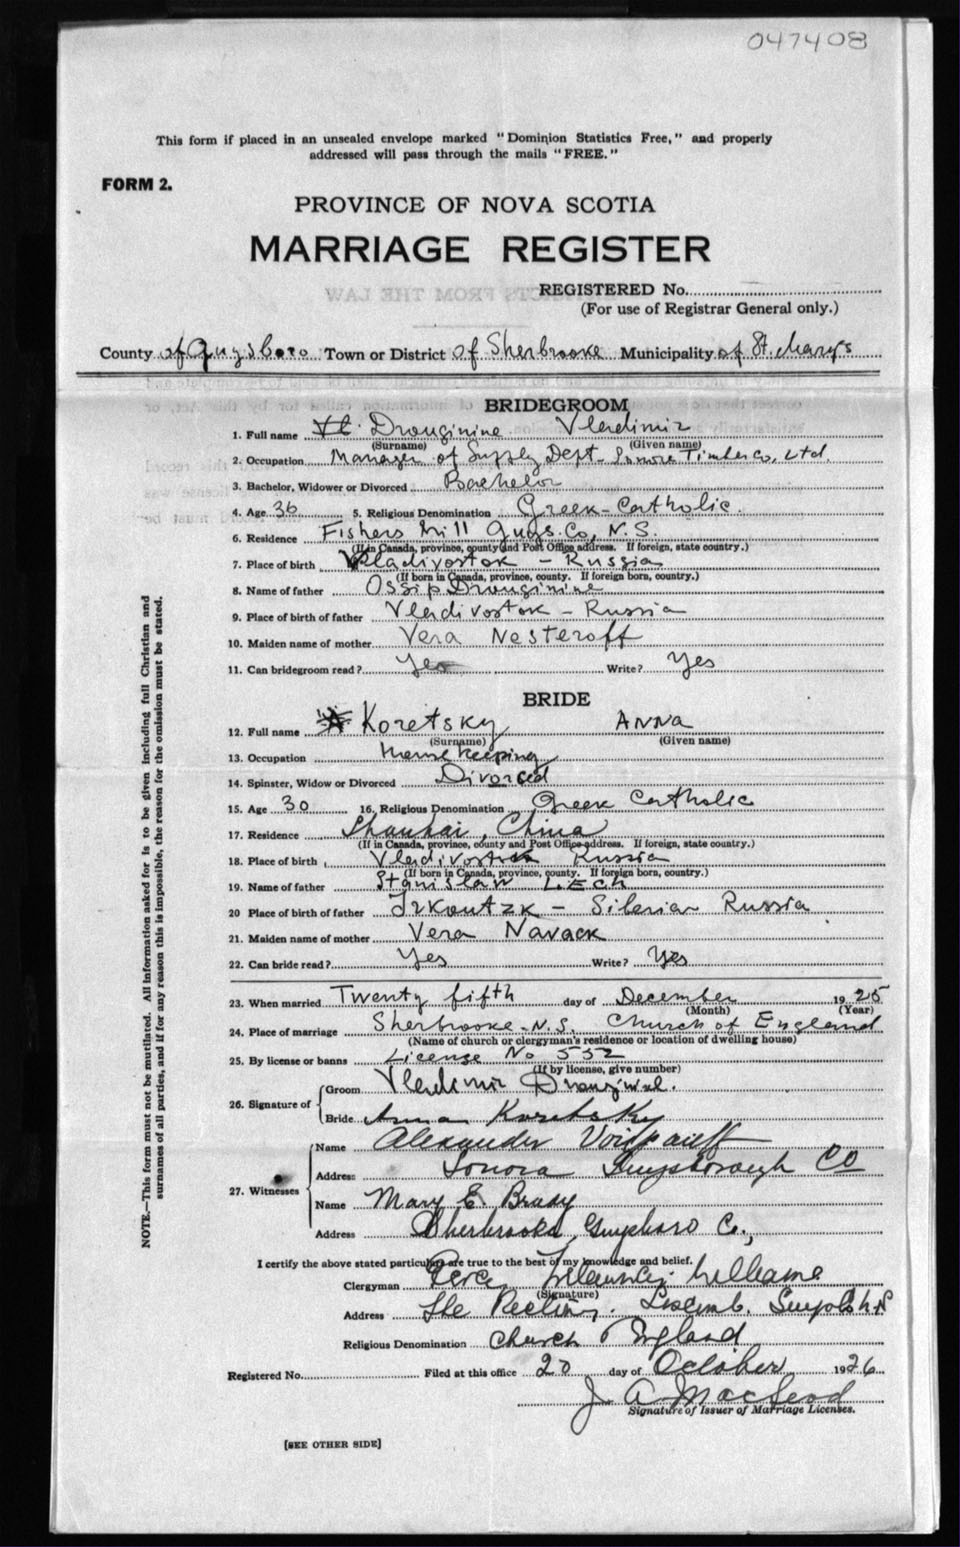 047408
This form if placed in an unsealed envelope marked "Dominion Statistics Free," and properly
addressed will pass through the mails "FREE."
FORM 2.
PROVINCE OF NOVA SCOTIA
MARRIAGE REGISTER
REGISTERED No.
(For use of Registrar General only.)
County of Guysboro Town or District of Sherbrooke Municipality of St. Mary's
BRIDEGROOM
1. Full name Drouginine Vladimir
(Surname) (Given name)
2. Occupation Manager of Supply Dept- Sonora Timber Co, Ltd.
3. Bachelor, Widower or Divorced Bachelor
4. Age 36 5. Religious Denomination Greek-Catholic.
6. Residence Fishers Mill Guys. Co, N.S.
(If in Canada, province, county and Post Office address. If foreign, state country.)
7. Place of birth Vladivostok - Russia
(If born in Canada, province, county. If foreign born, country.)
8. Name of father Ossip Drouginine
9. Place of birth of father Vladivostok - Russia
10. Maiden name of mother Vera Nesteroff
11. Can bridegroom read? Yes Write? Yes
BRIDE
12. Full name Koretsky Anna
(Surname) (Given name)
13. Occupation Housekeeping
14. Spinster, Widow or Divorced Divorced
15. Age 30 16. Religious Denomination Greek Catholic
17. Residence Shanhai, China
(If in Canada, province, county and Post Office address. If foreign, state country.)
18. Place of birth Vladivostok Russia
(If born in Canada, province, county. If foreign born, country.)
19. Name of father Stanislaw Lech
20 Place of birth of father Irkoutzk - Siberia Russia
21. Maiden name of mother Vera Navack
22. Can bride read? Yes Write? Yes
23. When married Twenty fifth day of December 1925
(Month) (Year)
24. Place of marriage Sherbrooke - N.S. Church of England
(Name of church or clergyman's residence or location of dwelling house)
25. By license or banns License No 552
(If by license, give number)
26. Signature of
Groom Vladimir
Bride Anna Koretsky
27. Witnesses
Name Alexander
Address Sonora Guysborough CO
Name Mary E. Brady
Address Sherbrooke, Guysboro Co.,
I certify the above stated particulars are true to the best of my knowledge and belief.
Clergyman Williams
(Signature)
Address The Rectory. Liscomb,
Religious Denomination Church England
Registered No. Filed at this office 20 day of October 1926
J A MacLeod
Signature of Issuer of Marriage Licenses.
[SEE OTHER SIDE]
NOTE.—This form must not be mutilated. All information asked for is to be given including full Christian and
surnames of all parties, and if for any reason this is impossible, the reason for the omission must be stated.